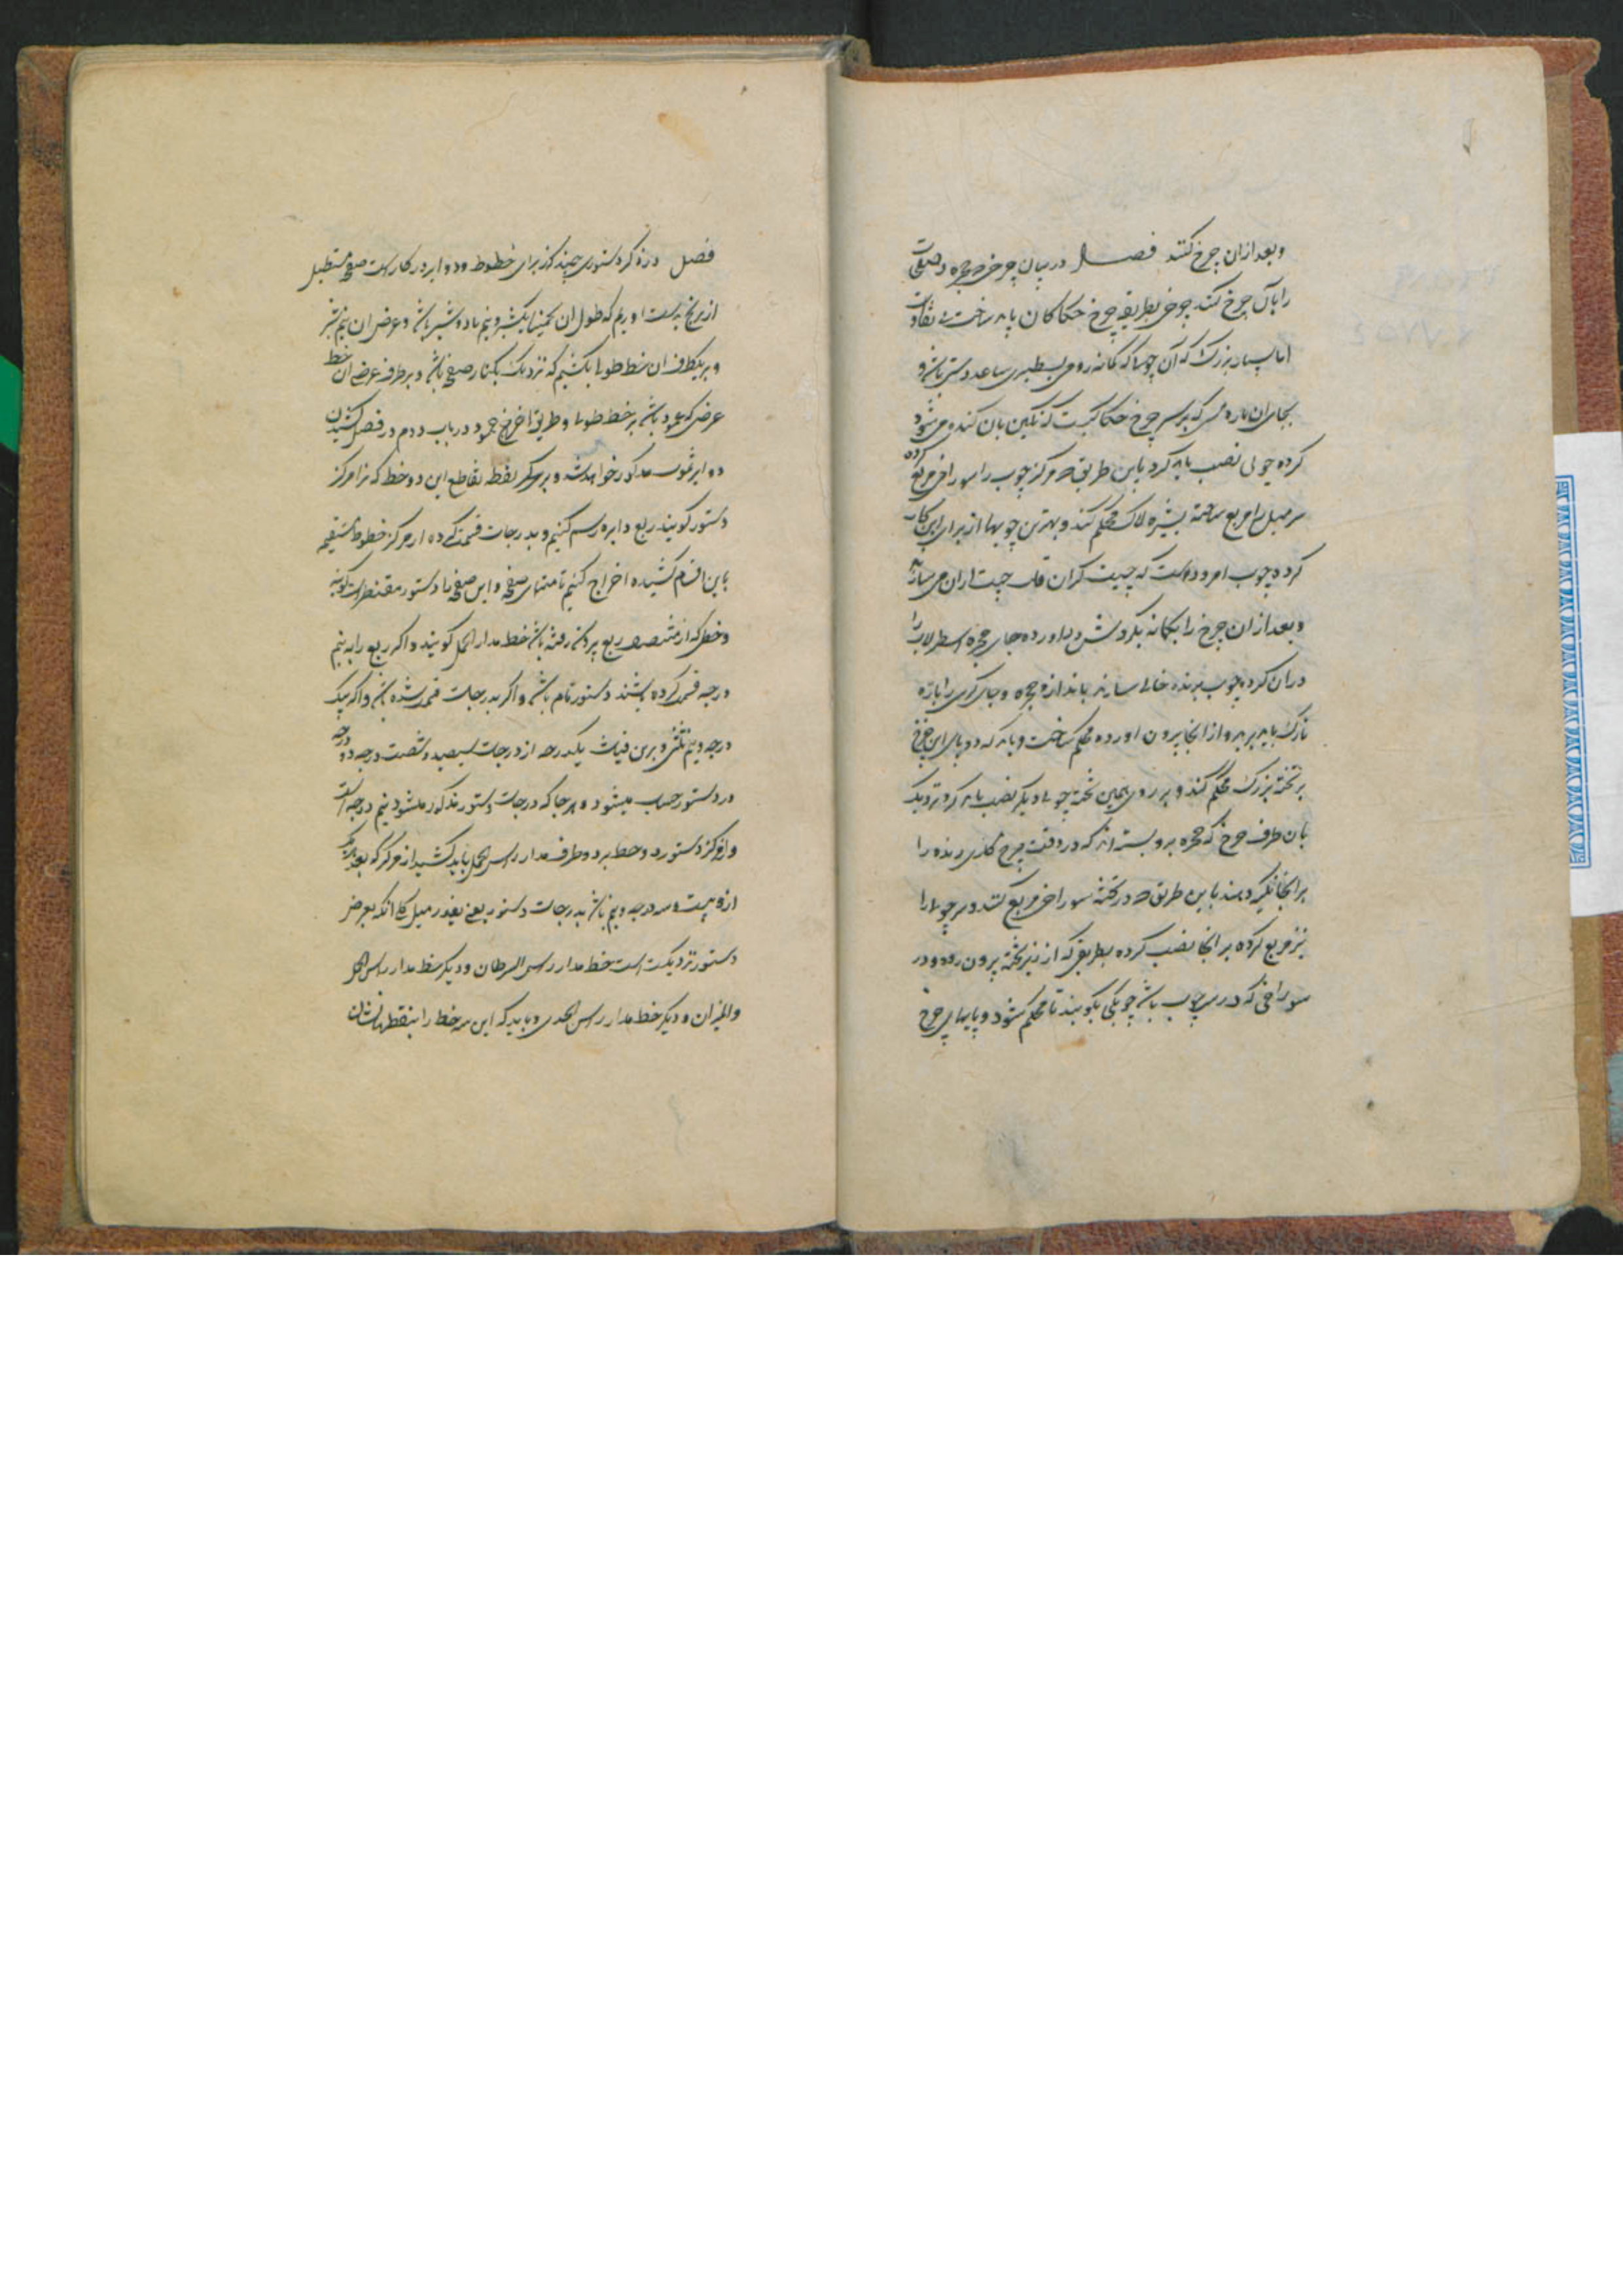 وبعد ازان چرخ کنند فصل در بیان چرخی که حجره و صفحات
را بآن چرخ کنند چرخی بطریقه چرخ حکاکان باید ساخت بی تفاوت
اما بسیار بزرگ که آن چوبها که کمانه روی بسطبری ساعد دستی باشد و
بجای ان پاره مس که بر سر چرخ حکاکیست که نگین بان کنده می شود
کرده چوبی نصب باید کرد باین طریق که مرکز چوب را سوراخی مربع کرده
سر میل را مربع ساخته بشیره لاک محکم کنند و بهترین چوبها از برای این کار
کرده چوب امرودست که چیت گران قالب چیت ازان می سازند
و بعد ازان چرخ را بکمانه بگردش در اورده جای حجره اسطرلاب را
دران کرده چوب برنده خالی سازند باندازه حجره و جای کرسی را باره
نازک باید برید و از انجا بیرون اورده محکم ساخت و باید که دو پای این چرخ
بر تخته بزرگ محکم کنند و بر روی همین تخته چوبی دیگر نصب باید کرد نزدیک
بان طرف چرخ که حجره برو بسته اند که در وقت چرخ کاری رنده را
بر انجا تکیه دهند باین طریق که در تخته سوراخی مربع کنند و سر چوب را
نیز مربع کرده بر انجا نصب کرده بطریقی که از زیر تخته بیرون رود و در
سوراخی که در سر چوب باشد چوبکی بکوبند تا محکم شود و پایهای چرخ
فصل در ذکر دستوری چند که از برای خطوط و دوایر در کارست صفحه مستطیل
از برنج بدست اوریم که طول ان تخمینا یکشبر و نیم یا دو شبر باشد و عرض ان نیم شبر
و بر یکطرف ان خط طولی بکشیم که نزدیک بکنار صفحه باشد و بر طرف عرض ان خط
عرضی که عمود باشد بر خط طولی و طریق اخراج عمود در باب دوم در فصل کشیدن
دوایر سموت مذکور خواهد شد و بر مرکز نقطه تقاطع این دو خط که انرا مرکز
دستور گویند ربع دایره رسم کنیم و بدرجات قسمت کرده از مرکز خطوط مستقیمه
باین اقسام کشیده اخراج کنیم تا منتهای صفحه و این صفحه را دستور مقنطرات گویند
و خطی که از منتصف ربع بیرون رفته باشد خط مدار الحمل گویند و اگر ربع را به نیم
درجه قسمت کرده باشند دستور تام باشد و اگر بدرجات قسمت شده باشد و اگر بیک
درجه و نیم ثلثی و برین قیاس یکدرجه از درجات سیصد و شصت درجه دو درجه
در دستور حساب میشود و هر جا که درجات دستور مذکور میشود نیم درجه است
و از مرکز دستور دو خط بر دو طرف مدار راس الحمل باید کشید از مرکز که بعد هر یک
ازو بیست و سه درجه و نیم باشد بدرجات دستور یعنی بقدر میل کلی انکه بعرض
دستور نزدیکست خط مدار راس السرطان و دیگر خط مدار راس الحمل
والمیزان و دیگر خط مدار راس الجدی و باید که این سه خط را بنقطها نشان